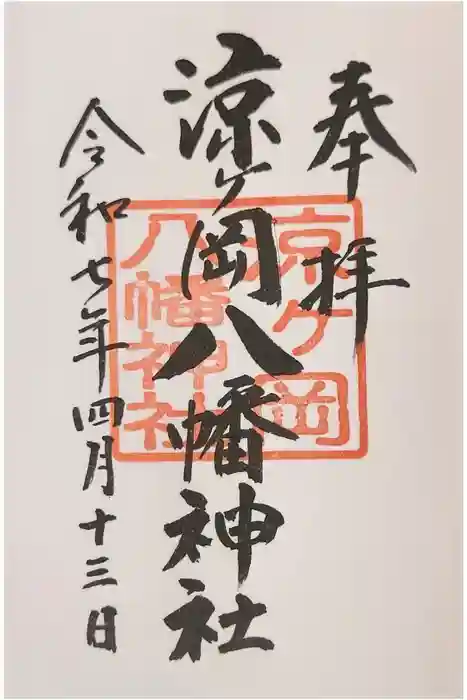 奉拝
涼ヶ岡八幡神社
令和七年四月十三日
涼ヶ岡
八幡神社